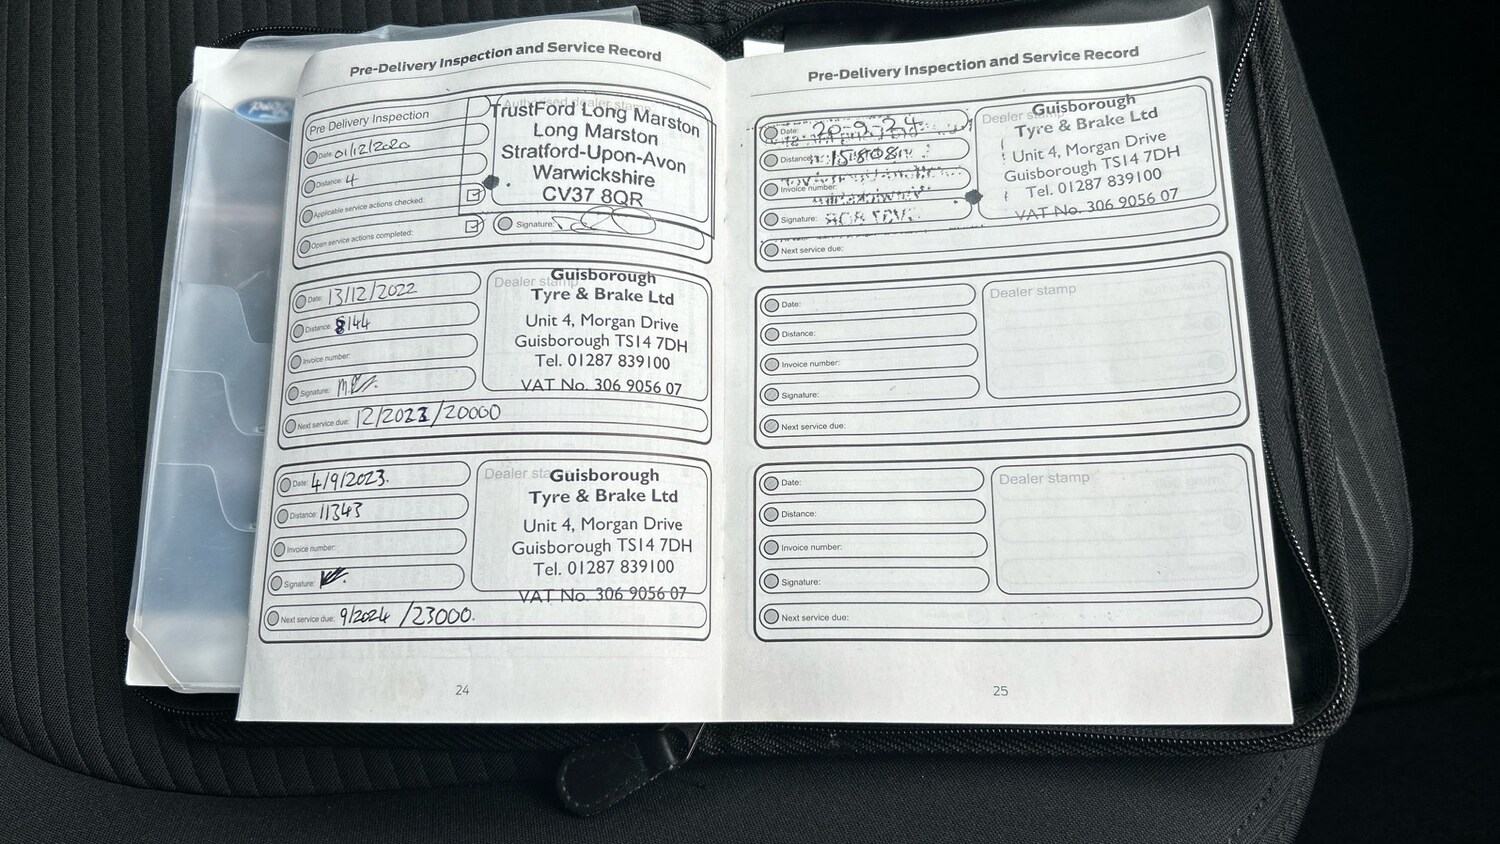 Pre-Delivery Inspection and Service Record
Pre Delivery Inspection
Date: 01/12/2020
Distance: 4
Applicable service actions checked:
Open service actions completed:
Authorised dealer stamp
TrustFord Long Marston
Long Marston
Stratford-Upon-Avon
Warwickshire
CV37 8QR
Signature:
Date: 13/12/2022
Distance: 8144
Invoice number:
Signature:
Next service due: 12/2023/20000
Dealer stamp
Guisborough
Tyre & Brake Ltd
Unit 4, Morgan Drive
Guisborough TS14 7DH
Tel. 01287 839100
VAT No. 306 9056 07
Date: 4/9/2023.
Distance: 11343
Invoice number:
Signature:
Next service due: 9/2024 /23000.
Dealer stamp
Guisborough
Tyre & Brake Ltd
Unit 4, Morgan Drive
Guisborough TS14 7DH
Tel. 01287 839100
VAT No. 306 9056 07
24
Pre-Delivery Inspection and Service Record
Date: 20-9-24
Distance: 15808
Invoice number:
Signature:
Next service due:
Dealer stamp
Guisborough
Tyre & Brake Ltd
Unit 4, Morgan Drive
Guisborough TS14 7DH
Tel. 01287 839100
VAT No. 306 9056 07
Date:
Distance:
Invoice number:
Signature:
Next service due:
Dealer stamp
Date:
Distance:
Invoice number:
Signature:
Next service due:
Dealer stamp
25